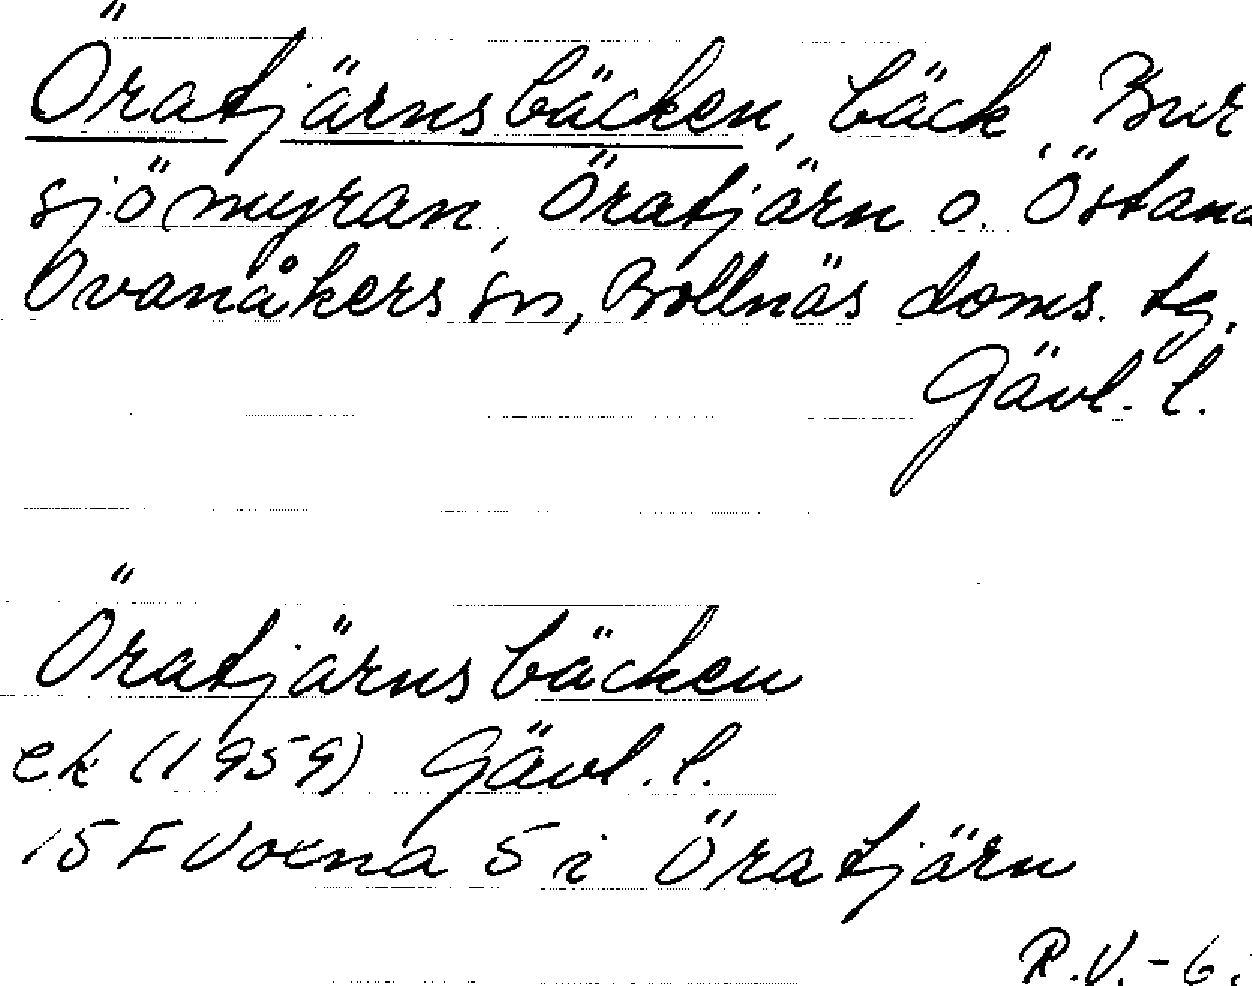 Öratjärnsbäcken, bäck, Bur
sjömyran, Öratjärn o. Östana
Ovanåkers sn, Bollnäs doms. tg.
Gävl. l.
Öratjärnsbäcken
ek (1959) Gävl. l.
15 F Voxna 5 i Öratjärn
R.V. - 6.